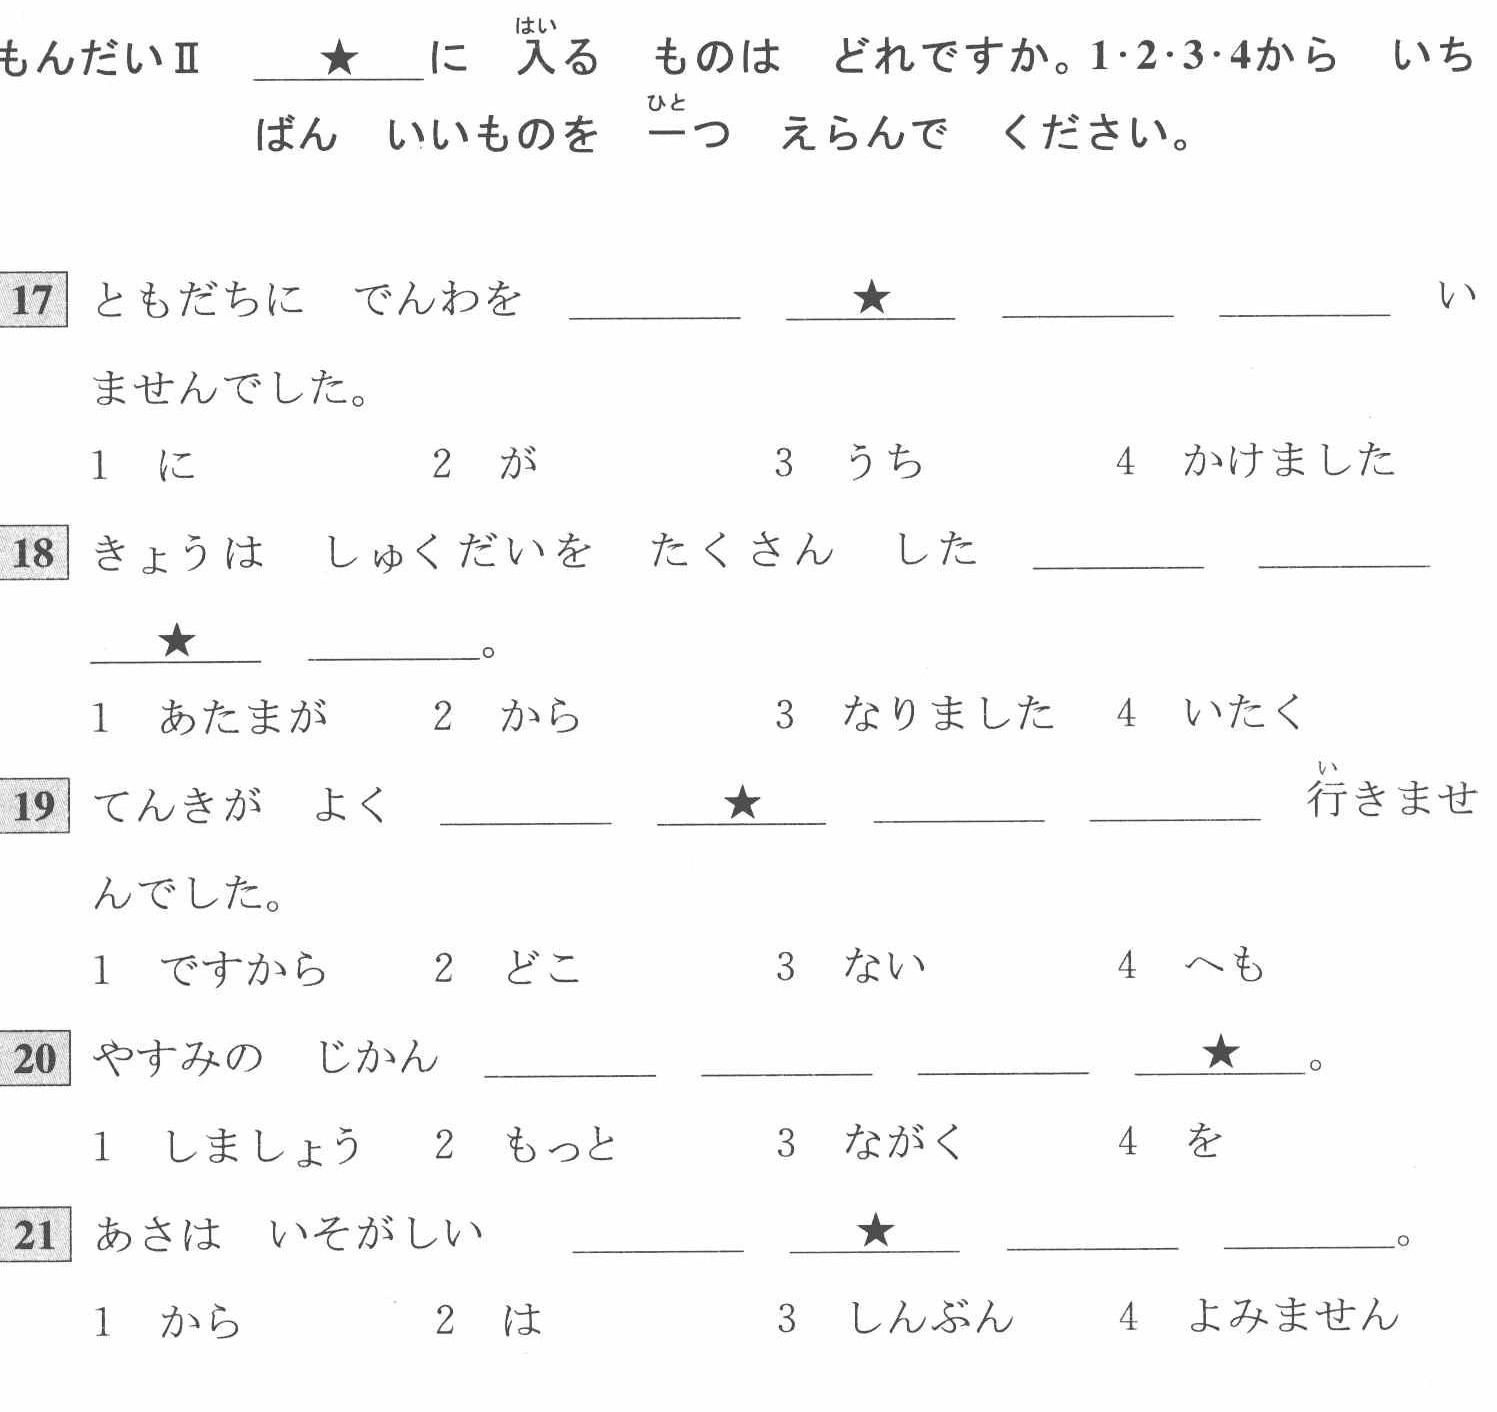 もんだいⅡ ＿＿★＿＿に 入る ものは どれですか。1・2・3・4から いち
ばん いいものを 一つ えらんで ください。
17 ともだちに でんわを ＿＿＿＿ ＿＿★＿＿ ＿＿＿＿ ＿＿＿＿ い
ませんでした。
1 に 2 が 3 うち 4 かけました
18 きょうは しゅくだいを たくさん した ＿＿＿＿ ＿＿＿＿
＿＿★＿＿ ＿＿＿＿。
1 あたまが 2 から 3 なりました 4 いたく
19 てんきが よく ＿＿＿＿ ＿＿★＿＿ ＿＿＿＿ ＿＿＿＿ 行きませ
んでした。
1 ですから 2 どこ 3 ない 4 へも
20 やすみの じかん ＿＿＿＿ ＿＿＿＿ ＿＿＿＿ ＿＿★＿＿。
1 しましょう 2 もっと 3 ながく 4 を
21 あさは いそがしい ＿＿＿＿ ＿＿★＿＿ ＿＿＿＿ ＿＿＿＿。
1 から 2 は 3 しんぶん 4 よみません